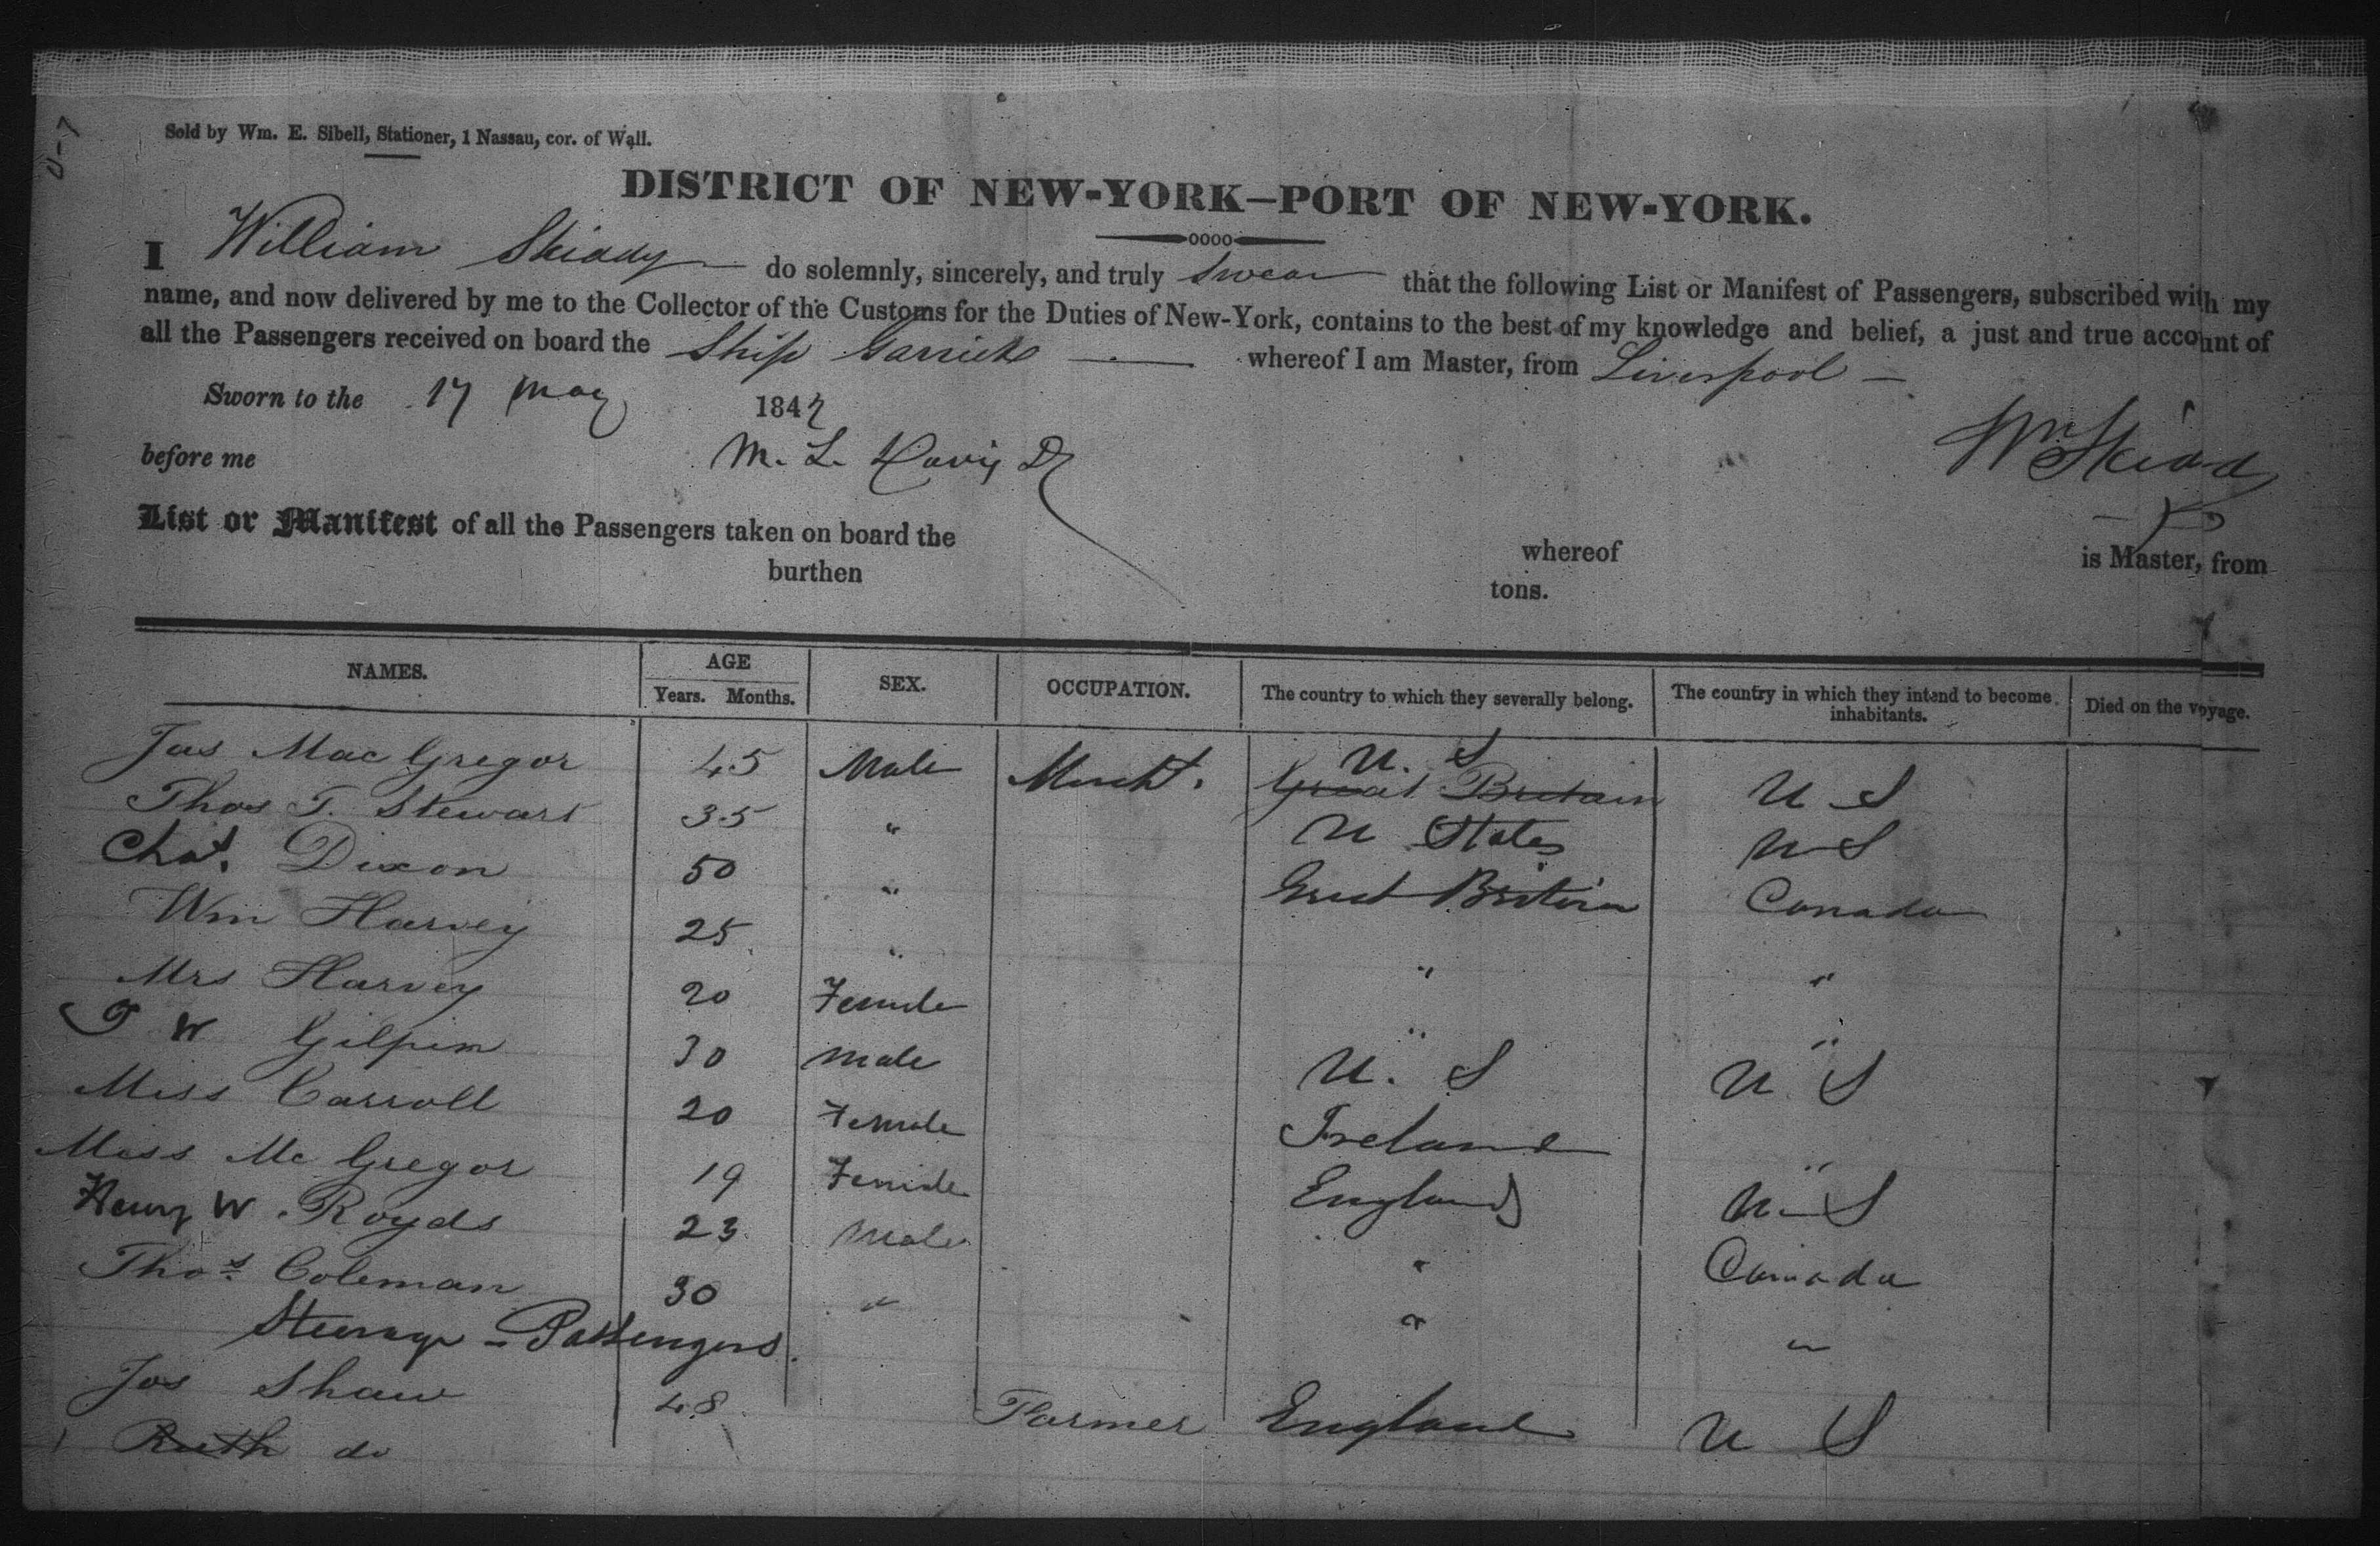 Sold by Wm. E. Sibell, Stationer, 1 Nassau, cor. of Wall.
DISTRICT OF NEW-YORK—PORT OF NEW-YORK.
I William Skiddy do solemnly, sincerely, and truly swear that the following List or Manifest of Passengers, subscribed with my
name, and now delivered by me to the Collector of the Customs for the Duties of New-York, contains to the best of my knowledge and belief, a just and true account of
all the Passengers received on board the Ship Garrick whereof I am Master, from Liverpool
Sworn to the 17 May 1847
before me M. L. Davis
Wm Skiddy
List or Manifest of all the Passengers taken on board the whereof is Master, from
burthen tons.
NAMES. AGE SEX. OCCUPATION. The country to which they severally belong. The country in which they intend to become inhabitants. Died on the voyage.
Years. Months.
Jas Mac Gregor 45 Male Mercht. U. S Great Britain U S
Thos T. Stewart 35 " U States U S
Chas. Dixon 50 " Great Britain Canada
Wm Harvey 25 " " "
Mrs Harvey 20 Female " "
T W Gilpin 30 male U. S U S
Miss Carroll 20 Female Ireland "
Miss Mc Gregor 19 Female England U S
Henry W. Royds 23 Male " Canada
Thos. Coleman 30 " " "
Steerage - Passengers.
Jos Shaw 48 Farmer England U S
Ruth do